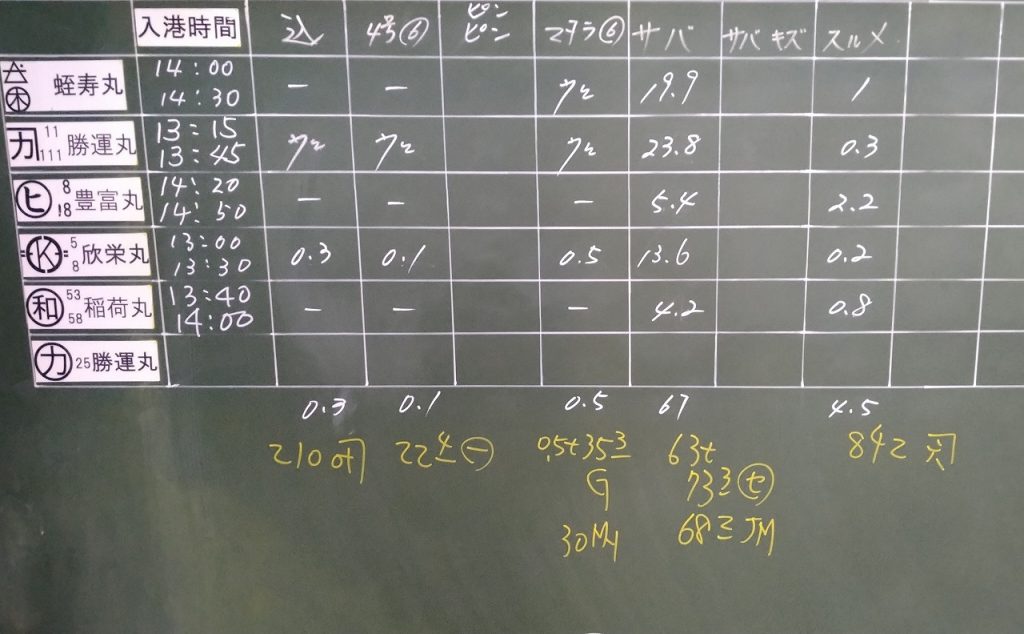 入港時間 込 4号⑥ ピンピン マダラ⑥ サバ サバキズ スルメ
蛭寿丸 14:00 14:30 ー ー 19.9 1
カ 11 111 勝運丸 13:15 13:45 23.8 0.3
ヒ 8 18 豊富丸 14:20 14:50 ー ー ー 5.4 2.2
K 5 8 欣栄丸 13:00 13:30 0.3 0.1 0.5 13.6 0.2
和 53 58 稲荷丸 13:40 14:00 ー ー ー 4.2 0.8
カ 25 勝運丸
0.3 0.1 0.5 67 4.5
210 224 0.5t 353 63t 842
G 733 セ
30 683 JM